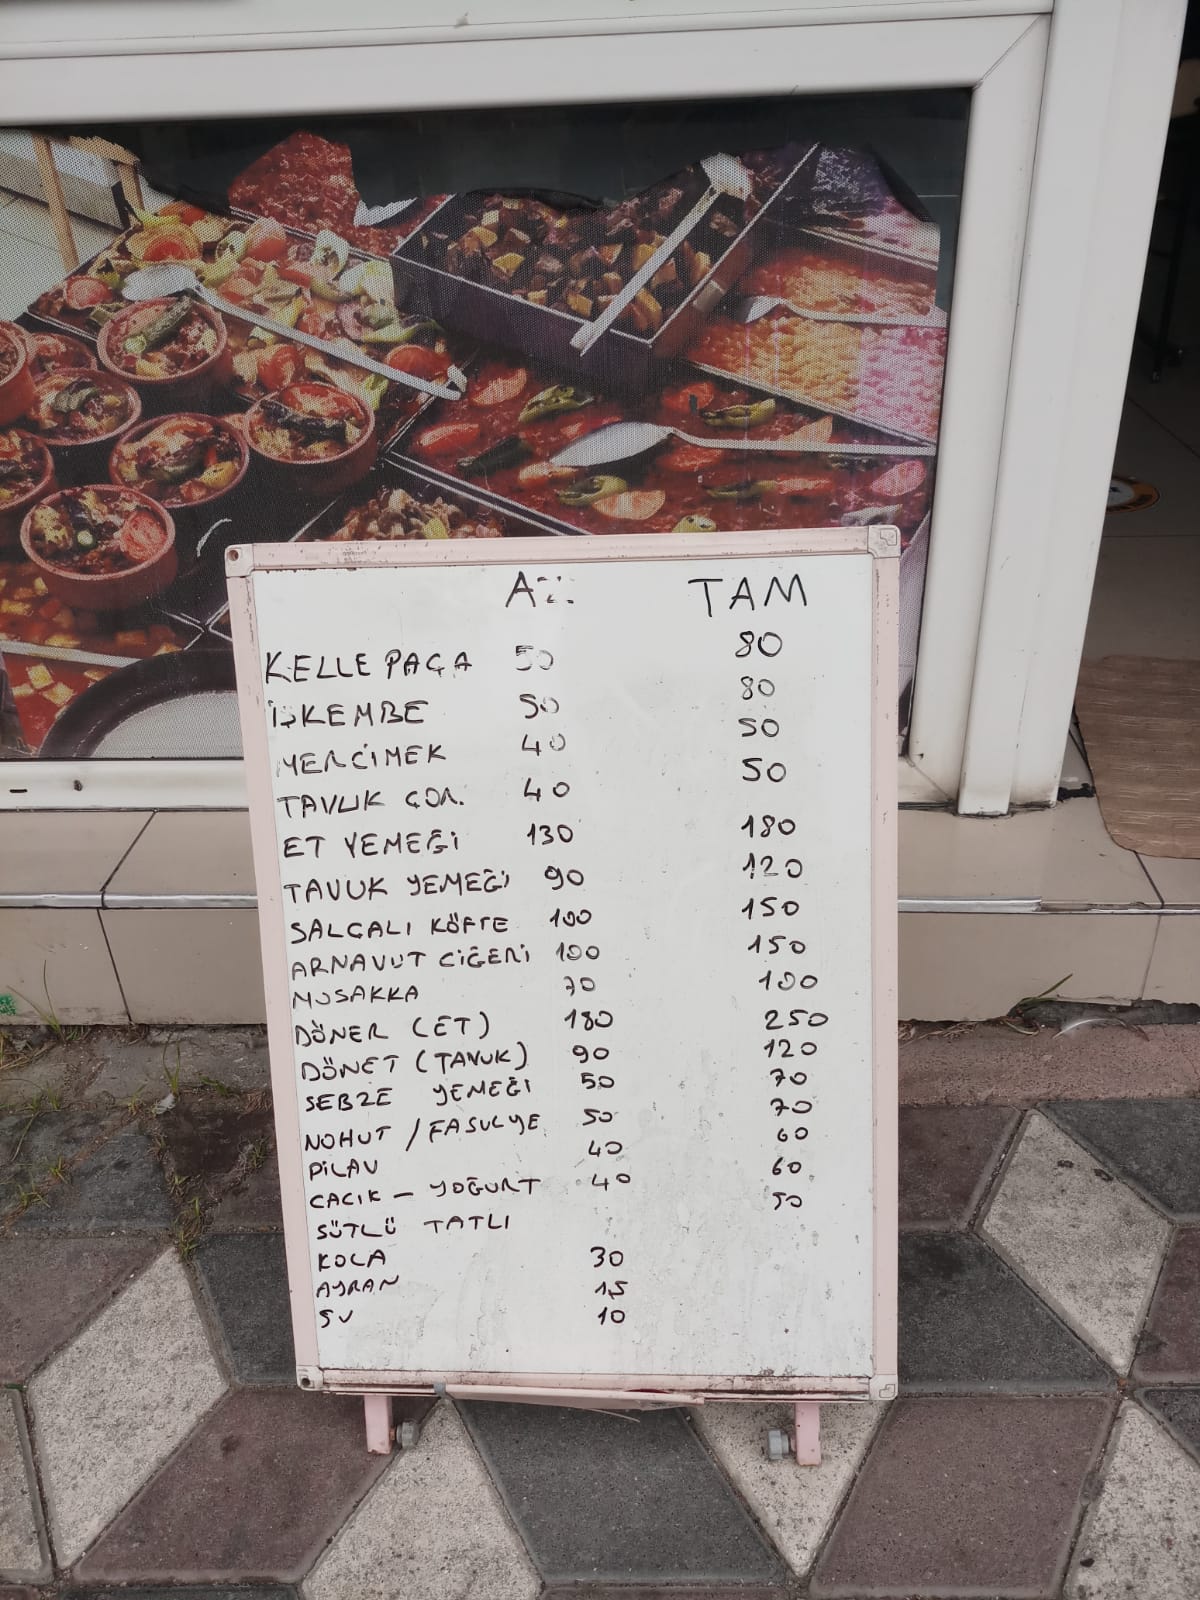 AZ TAM
KELLE PAÇA 50 80
İŞKEMBE 50 80
MERCİMEK 40 50
TAVUK ÇOR. 40 50
ET YEMEĞİ 130 180
TAVUK YEMEĞİ 90 120
SALÇALI KÖFTE 100 150
ARNAVUT CİĞERİ 100 150
MUSAKKA 70 100
DÖNER (ET) 180 250
DÖNET (TAVUK) 90 120
SEBZE YEMEĞİ 50 70
NOHUT / FASULYE 50 70
PİLAV 40 60
CACIK - YOĞURT 40 60
SÜTLÜ TATLI 50
KOLA 30
AYRAN 15
SU 10